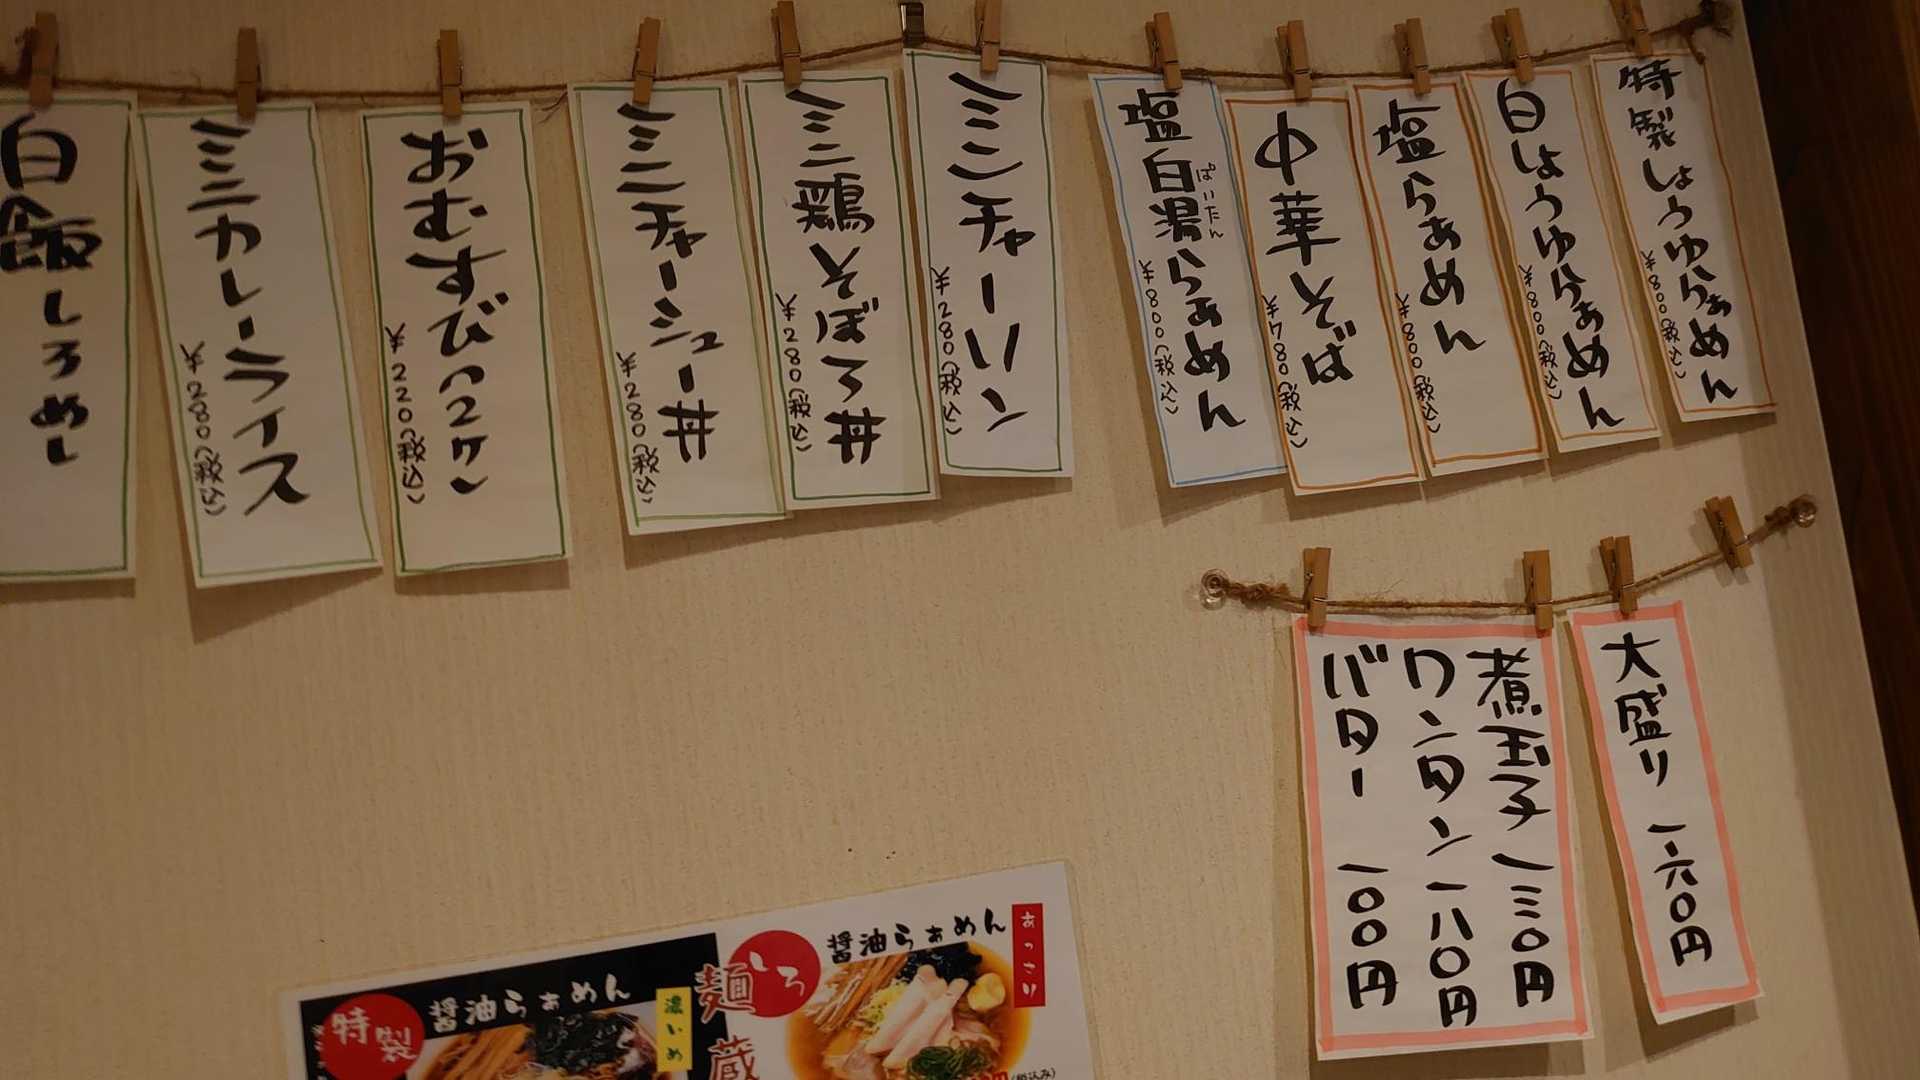 特製しょうゆらぁめん
¥800(税込)
白しょうゆらぁめん
¥800(税込)
塩らぁめん
¥800(税込)
中華そば
¥780(税込)
塩白湯らぁめん
ぱいたん
¥800(税込)
ミニチャーハン
¥280(税込)
ミニ鶏そぼろ丼
¥280(税込)
ミニチャーシュー丼
¥280(税込)
おむすび(2ケ)
¥220(税込)
ミニカレーライス
¥280(税込)
白飯しろめし
大盛り 一六〇円
煮玉子 一三〇円
ワンタン 一八〇円
バター 一〇〇円
特製
醤油らぁめん
濃いめ
麺いろ
蔵
醤油らぁめん
あっさり
(税込み)